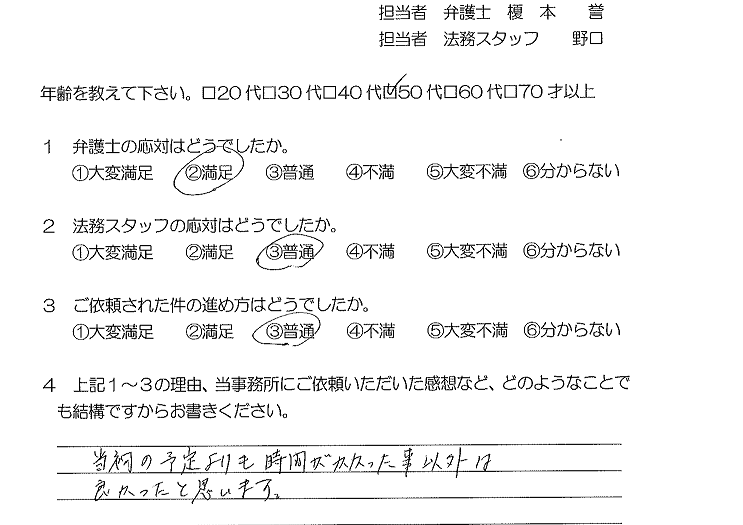 担当者 弁護士 榎 本 誉
担当者 法務スタッフ 野口
年齢を教えて下さい。□20代□30代□40代☑50代□60代□70才以上
1 弁護士の応対はどうでしたか。
①大変満足 ②満足 ③普通 ④不満 ⑤大変不満 ⑥分からない
2 法務スタッフの応対はどうでしたか。
①大変満足 ②満足 ③普通 ④不満 ⑤大変不満 ⑥分からない
3 ご依頼された件の進め方はどうでしたか。
①大変満足 ②満足 ③普通 ④不満 ⑤大変不満 ⑥分からない
4 上記1～3の理由、当事務所にご依頼いただいた感想など、どのようなことで
も結構ですからお書きください。
当初の予定よりも時間がかかった事以外は
良かったと思います。